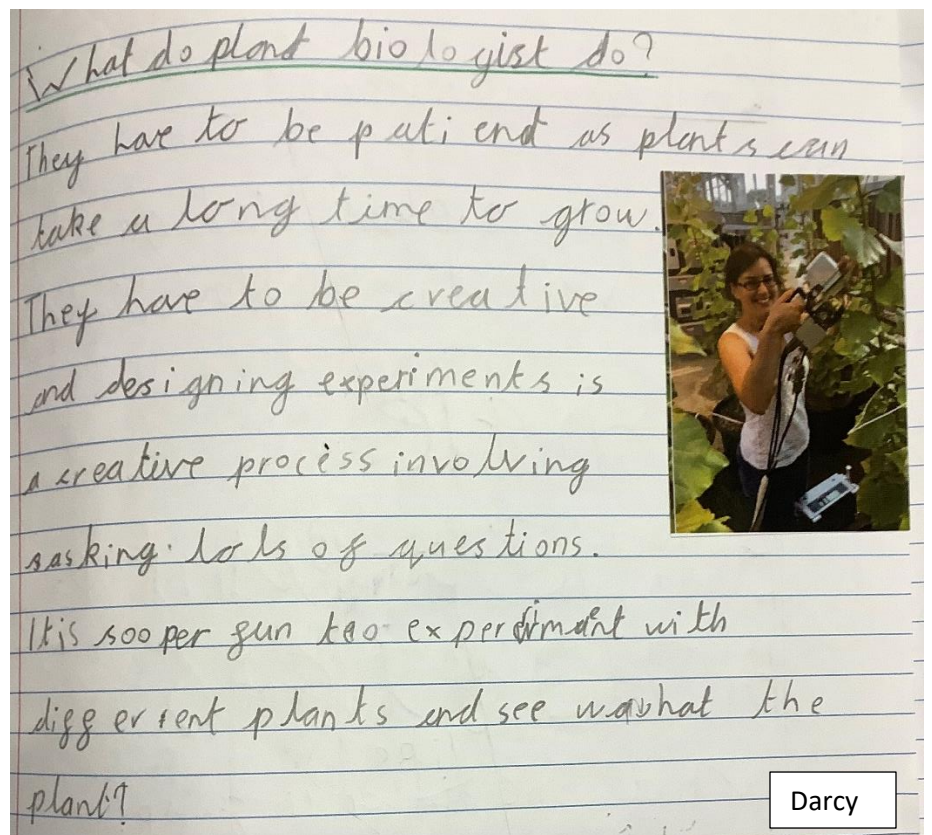 What do plant biologist do?
They have to be patiend as plants can
take a long time to grow.
They have to be creative
and designing experiments is
a creative process involving
asking lots of questions.
It is sooper fun too experiment with
differrent plants and see what the
plant?
Darcy